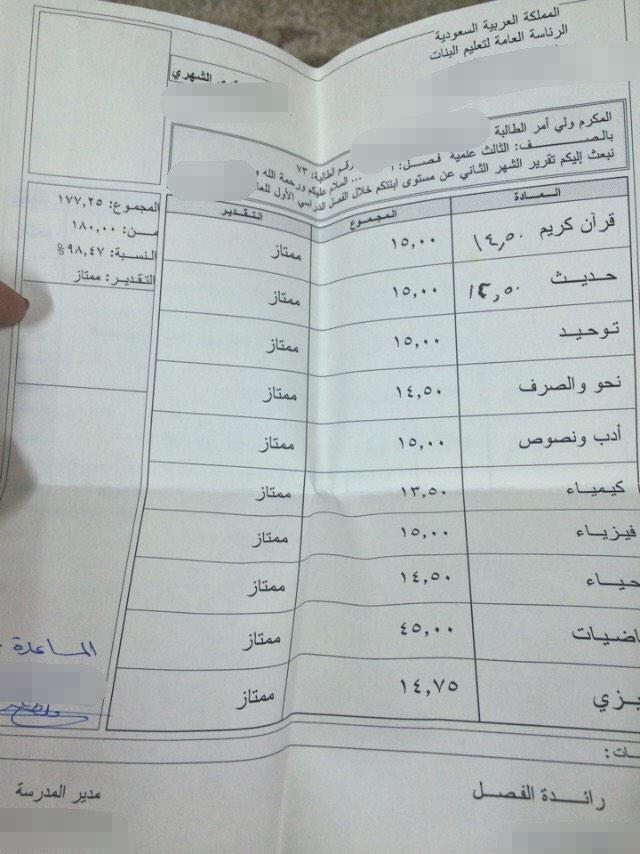 المملكة العربية السعودية
الرئاسة العامة لتعليم البنات
الشهري
المكرم ولي أمر الطالبة
بالصف: الثالث علمية فصل: رقم الطالبة: ٧٣
السلام عليكم ورحمة الله
نبعث إليكم تقرير الشهر الثاني عن مستوى ابنتكم خلال الفصل الدراسي الأول
المجموع: ١٧٧,٢٥
من: ١٨٠,٠٠
النسبة: ٩٨,٤٧%
التقدير: ممتاز
المادة المجموع التقدير
قرآن كريم ١٤,٥٠ ١٥,٠٠ ممتاز
حديث ١٤,٥٠ ١٥,٠٠ ممتاز
توحيد ١٥,٠٠ ممتاز
نحو والصرف ١٤,٥٠ ممتاز
أدب ونصوص ١٥,٠٠ ممتاز
كيمياء ١٣,٥٠ ممتاز
فيزياء ١٥,٠٠ ممتاز
حياء ١٤,٥٠ ممتاز
اضيات ٤٥,٠٠ ممتاز
يزي ١٤,٧٥ ممتاز
المساعدة
ات:
رائدة الفصل
مدير المدرسة